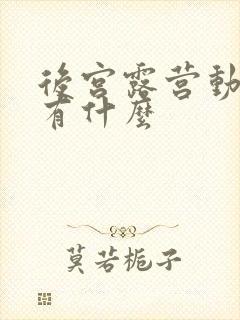 後宫露营動
有什麼
莫若栀子